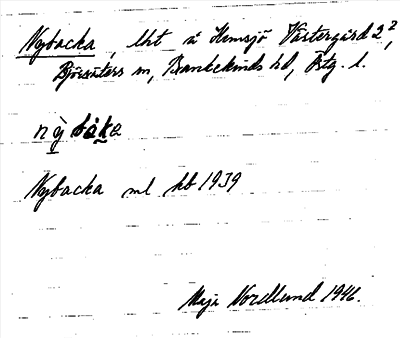 Nybacka, lht å Hemsjö Västergård 2²,
Björsäters sn, Bankekinds hd, Östg. l.
nỳ bàka
Nybacka ml hb 1939
Maja Nordlund 1946.